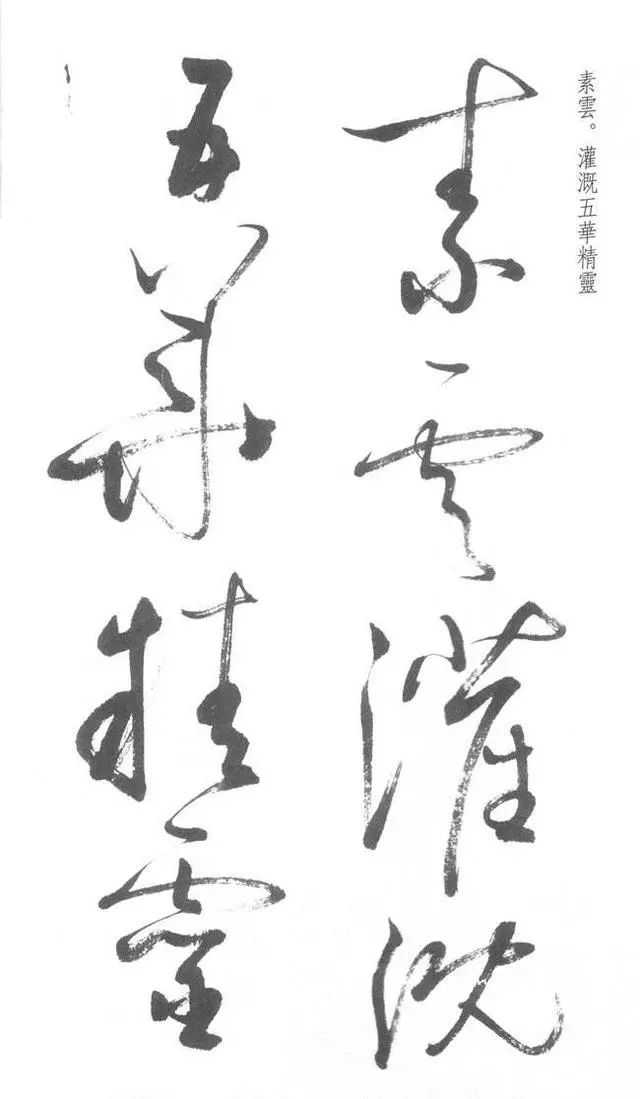 素雲。灌溉五華精靈
素雲灌溉
五華精靈